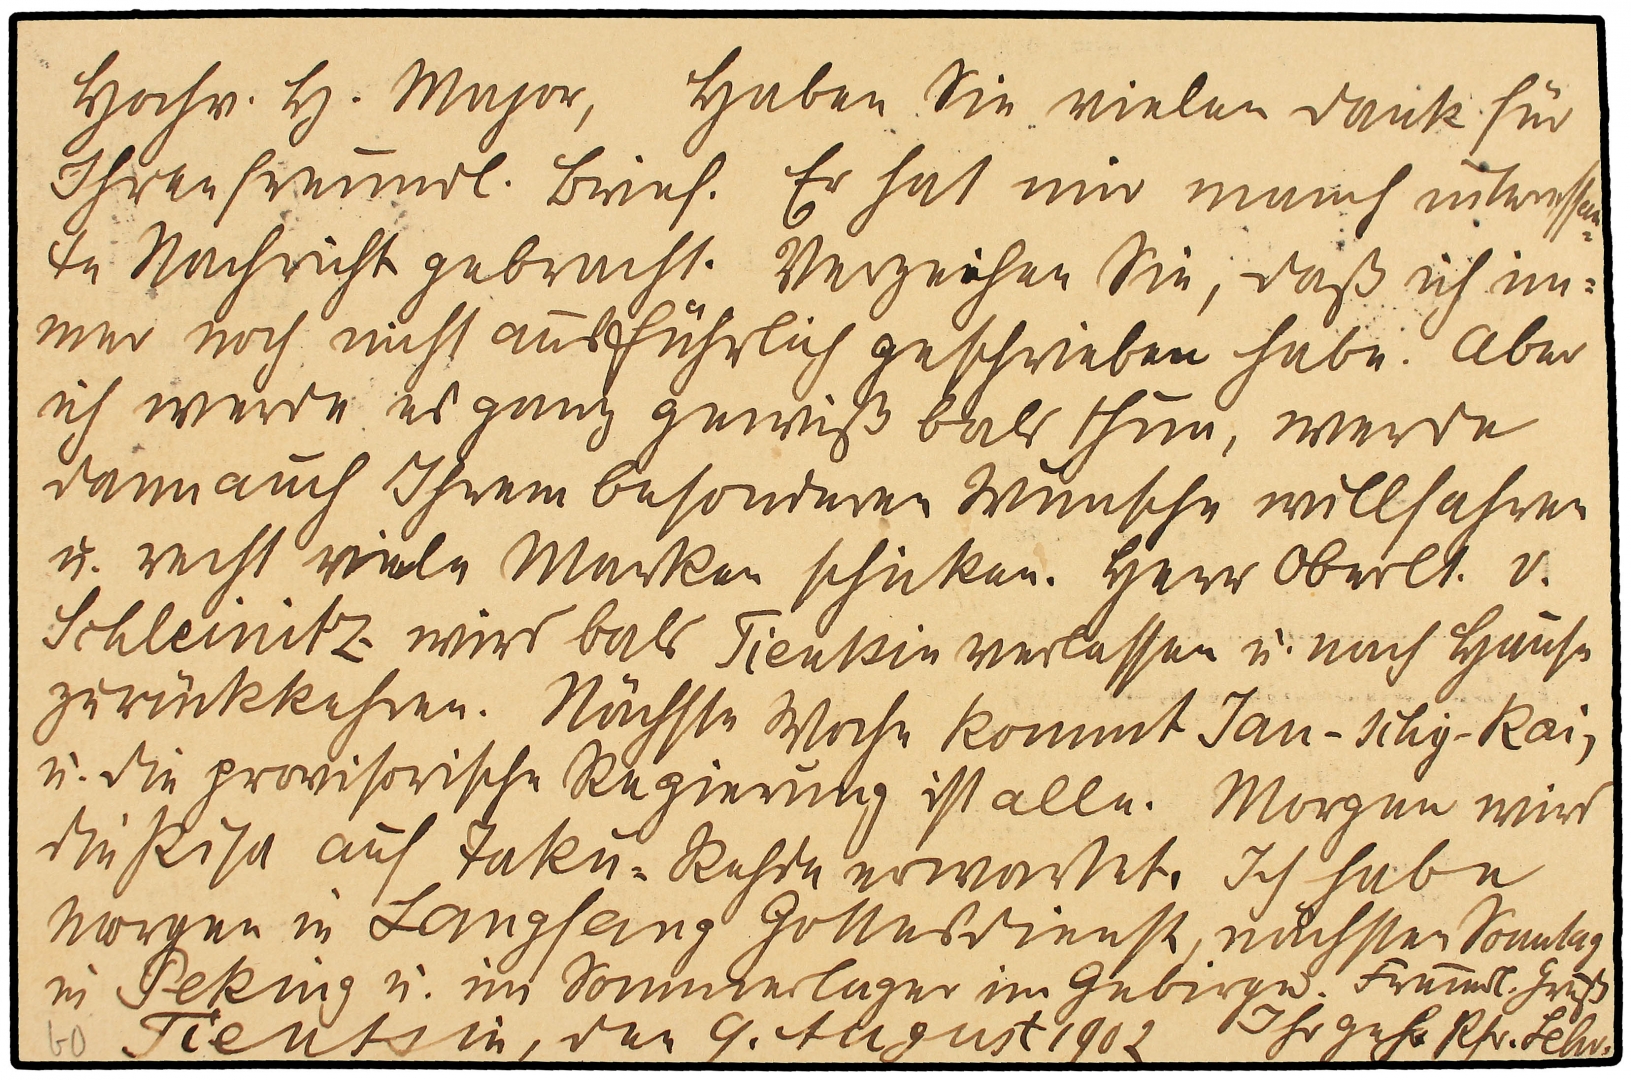 Hochv. H. Major, Haben Sie vielen Dank für
Ihren freundl. Brief. Er hat mir manch interessan-
te Nachricht gebracht. Verzeihen Sie, daß ich im-
mer noch nicht ausführlich geschrieben habe. Aber
ich werde es ganz gewiß bald thun, werde
dann auch Ihrem besonderen Wunsche willfahren
u. recht viele Marken schicken. Herr Oberlt. v.
Schleinitz wird bald Tientsin verlassen u. nach Hause
zurückkehren. Nächste Woche kommt Jan-schy-Kai,
u. die provisorische Regierung ist alle. Morgen wird
die auf Taku-Rehde erwartet. Ich habe
morgen in Langfang Gottesdienst, nächsten Sonntag
in Peking u. im Sommerlager im Gebirge. Freundl. Gruß
Tientsin, den 9. August 1902 Ihr geh. Pfr.
60